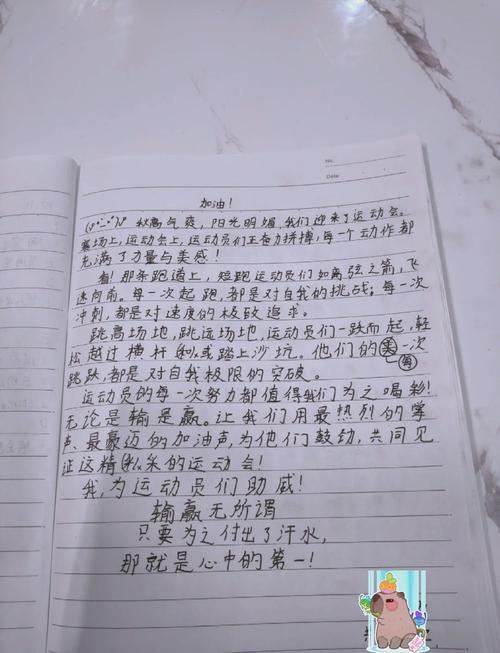 No.
Date
加油！
秋高气爽，阳光明媚，我们迎来了运动会。
赛场上，运动会上，运动员们正奋力拼搏，每一个动作都
充满了力量与美感！
看！那条跑道上，短跑运动员们如离弦之箭，飞
速向前。每一次起跑，都是对自我的挑战；每一次
冲刺，都是对速度的极致追求。
跳高场地，跳远场地，运动员们一跃而起，轻
松越过横杆，或踏上沙坑。他们的每一次
跳跃，都是对自我极限的突破。
运动员的每一次努力都值得我们为之喝彩！
无论是输是赢。让我们用最热烈的掌
声、最豪迈的加油声，为他们鼓劲，共同见
证这精采的运动会！
我，为运动员们助威！
输赢无所谓
只要为之付出了汗水，
那就是心中的第一！